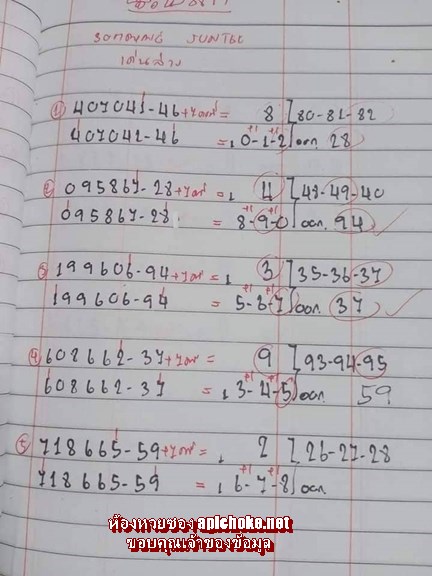 เด่นล่าง
① 407041-46+7ตรงที่ = 8 [80-81-82
407041-46 = 0-1-2] ออก. 28
② 095867-28+7 = 4 [48-49-40
095867-28 = 8-9-0] ออก. 94 ✓
③ 199606-94+7 = 3 [35-36-37
199606-94 = 5-6-7] ออก. 37 ✓
④ 608662-37+7 = 9 [93-94-95
608662-37 = 3-4-5] ออก. 59
⑤ 718665-59+7 = 2 [26-27-28
718665-59 = 6-7-8] ออก.
ห้องหวยซอง aplchoke.net
ขอบคุณเจ้าของข้อมูล